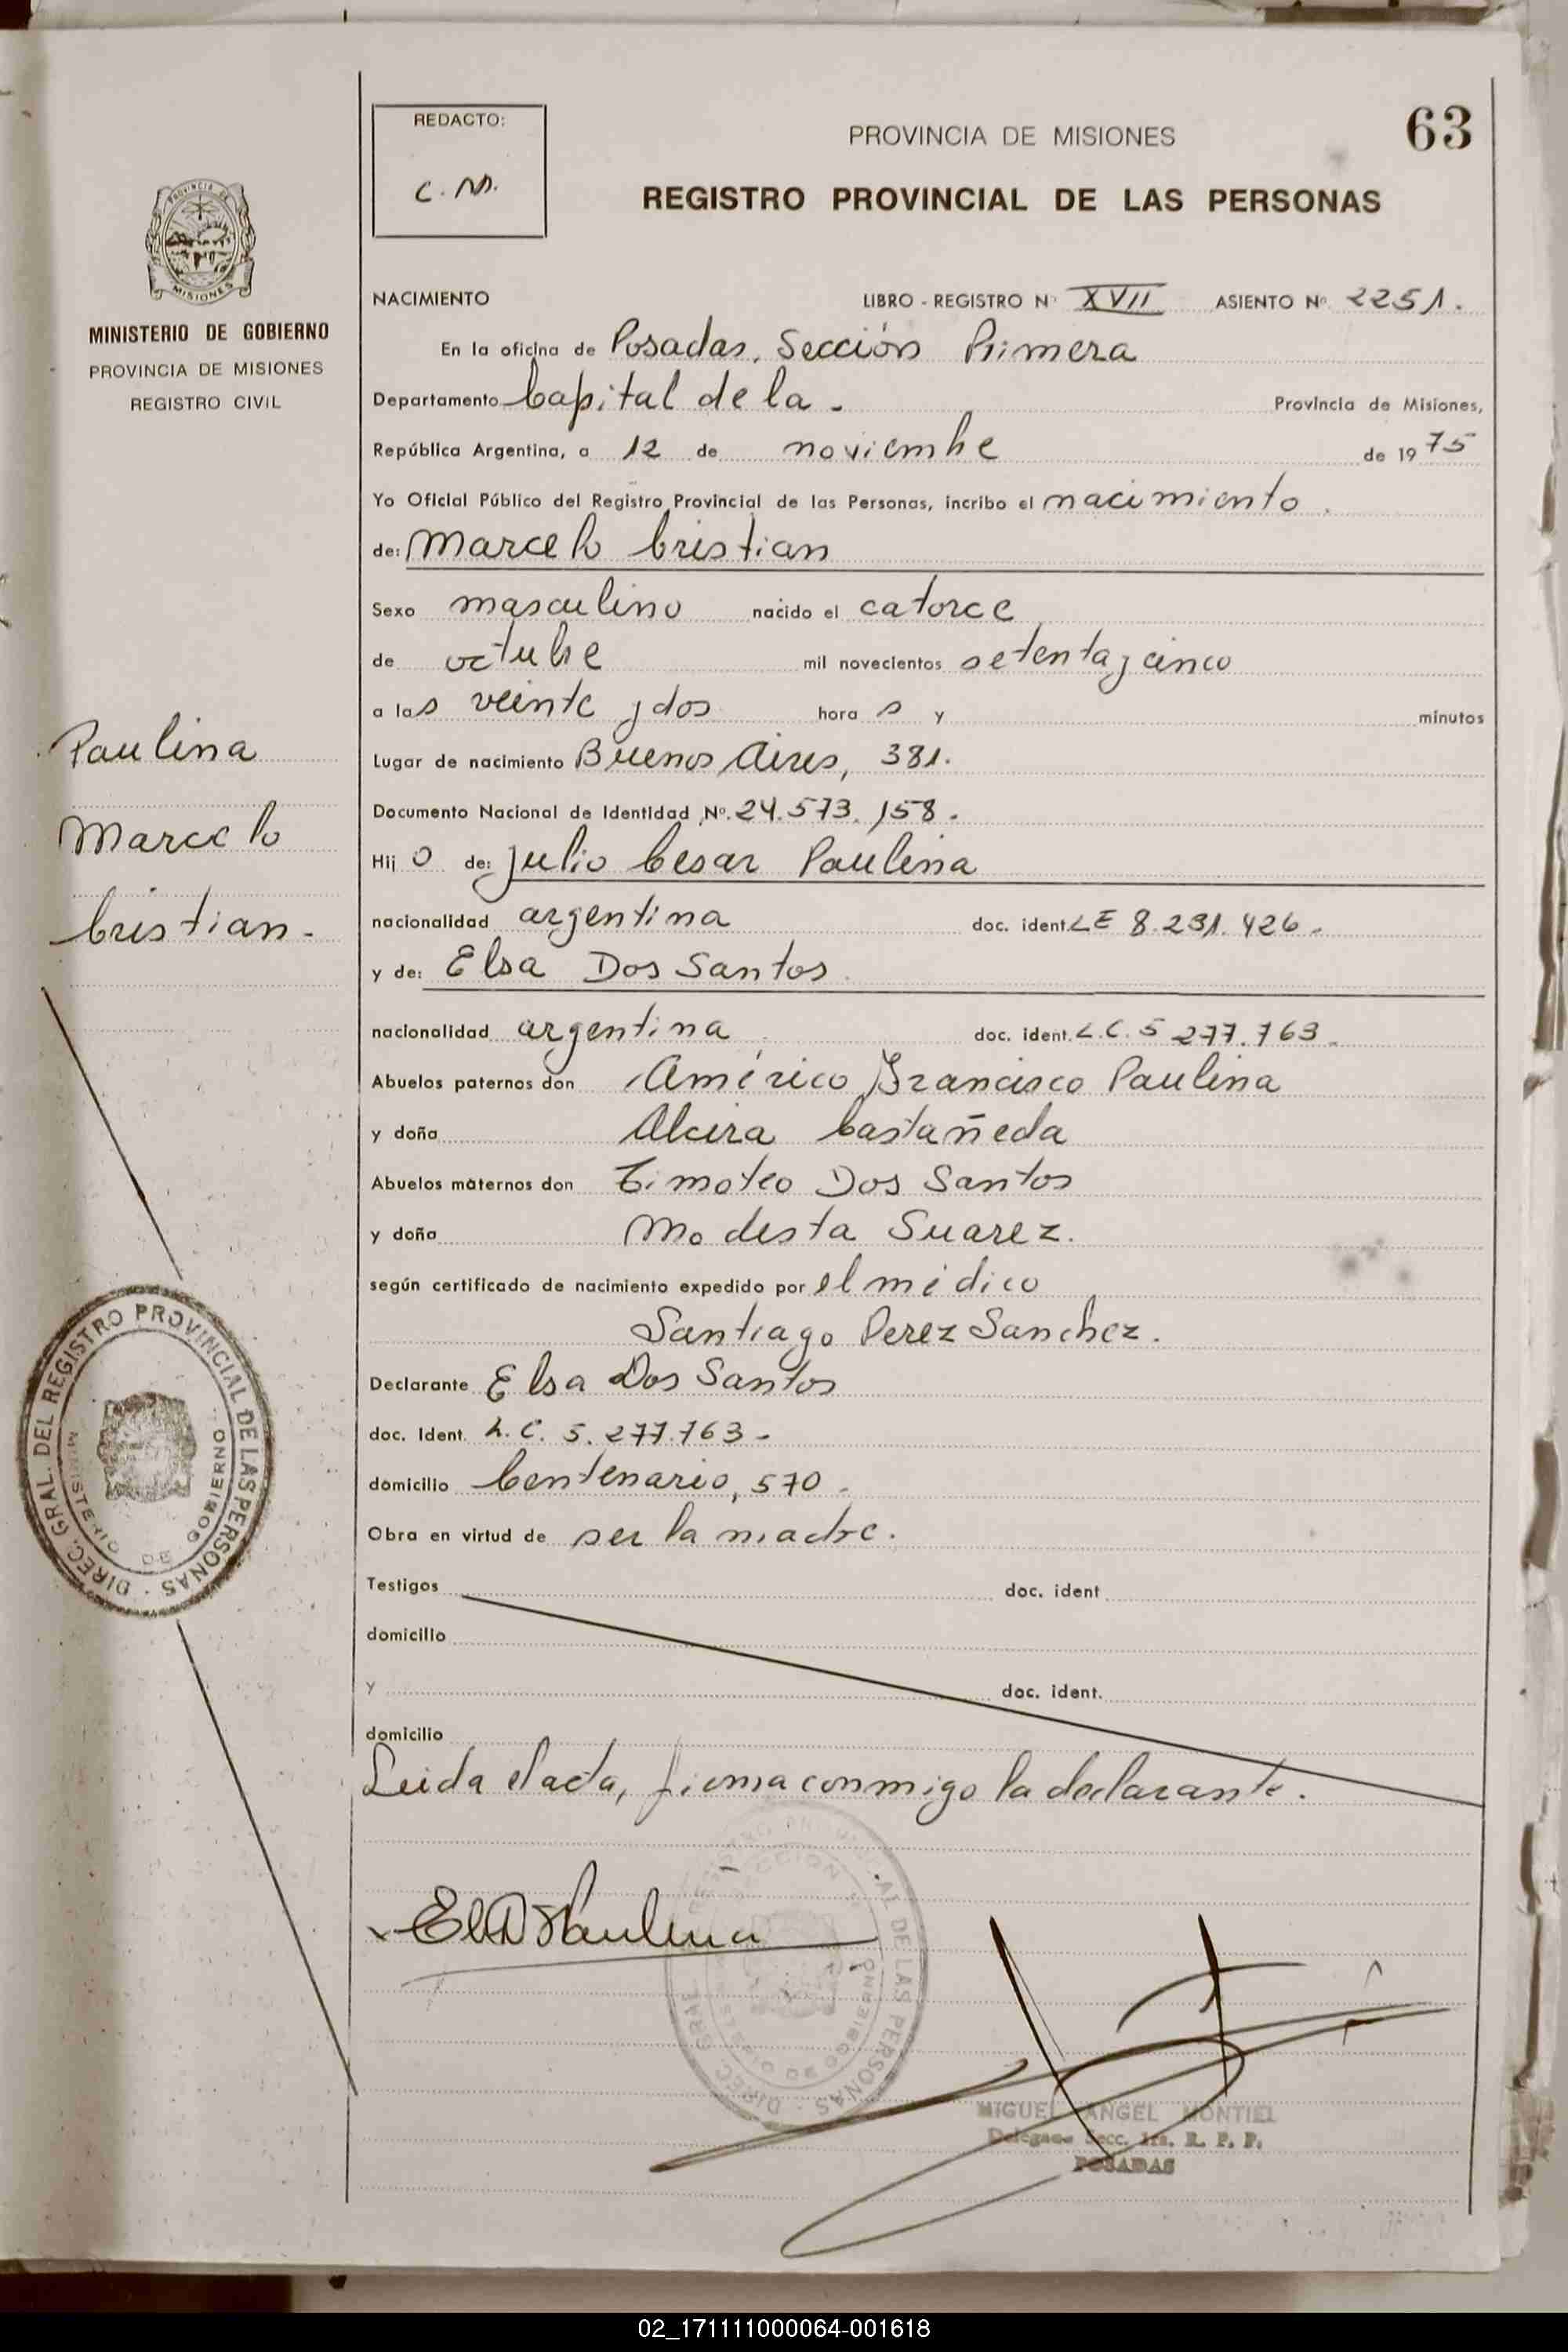 63
REDACTO:
C. M.
PROVINCIA DE MISIONES
REGISTRO PROVINCIAL DE LAS PERSONAS
MISIONES
MINISTERIO DE GOBIERNO
PROVINCIA DE MISIONES
REGISTRO CIVIL
NACIMIENTO LIBRO - REGISTRO Nº XVII ASIENTO Nº 2251.
En la oficina de Posadas, Sección Primera
Departamento Capital de la - Provincia de Misiones,
República Argentina, a 12 de noviembre de 1975
Yo Oficial Público del Registro Provincial de las Personas, incribo el nacimiento.
de: Marcelo Cristian
Sexo masculino nacido el catorce
de octubre mil novecientos setenta y cinco
a las veinte y dos hora s y minutos
Lugar de nacimiento Buenos Aires, 381.
Documento Nacional de Identidad Nº. 24.573.158.
Hij o de: Julio Cesar Paulina
nacionalidad argentina doc. ident. LE 8.231.426.
y de: Elsa Dos Santos
nacionalidad argentina doc. ident. L.C. 5 277.763.
Abuelos paternos don Américo Francisco Paulina
y doña Alcira Castañeda
Abuelos maternos don Timoteo Dos Santos
y doña Modesta Suarez.
según certificado de nacimiento expedido por el médico
Santiago Perez Sanchez.
Declarante Elsa Dos Santos
doc. Ident. L. C. 5. 277.763-
domicilio Centenario, 570.
Obra en virtud de ser la madre.
Testigos doc. ident
domicilio
y doc. ident.
domicilio
Leida el acta, firma conmigo la declarante.
Paulina
Marcelo
Cristian.
DIREC. GRAL. DEL REGISTRO PROVINCIAL DE LAS PERSONAS
MINISTERIO DE GOBIERNO
MIGUEL ANGEL MONTIEL
Delegado Secc. 1ra. R. P. P.
POSADAS
02_171111000064-001618